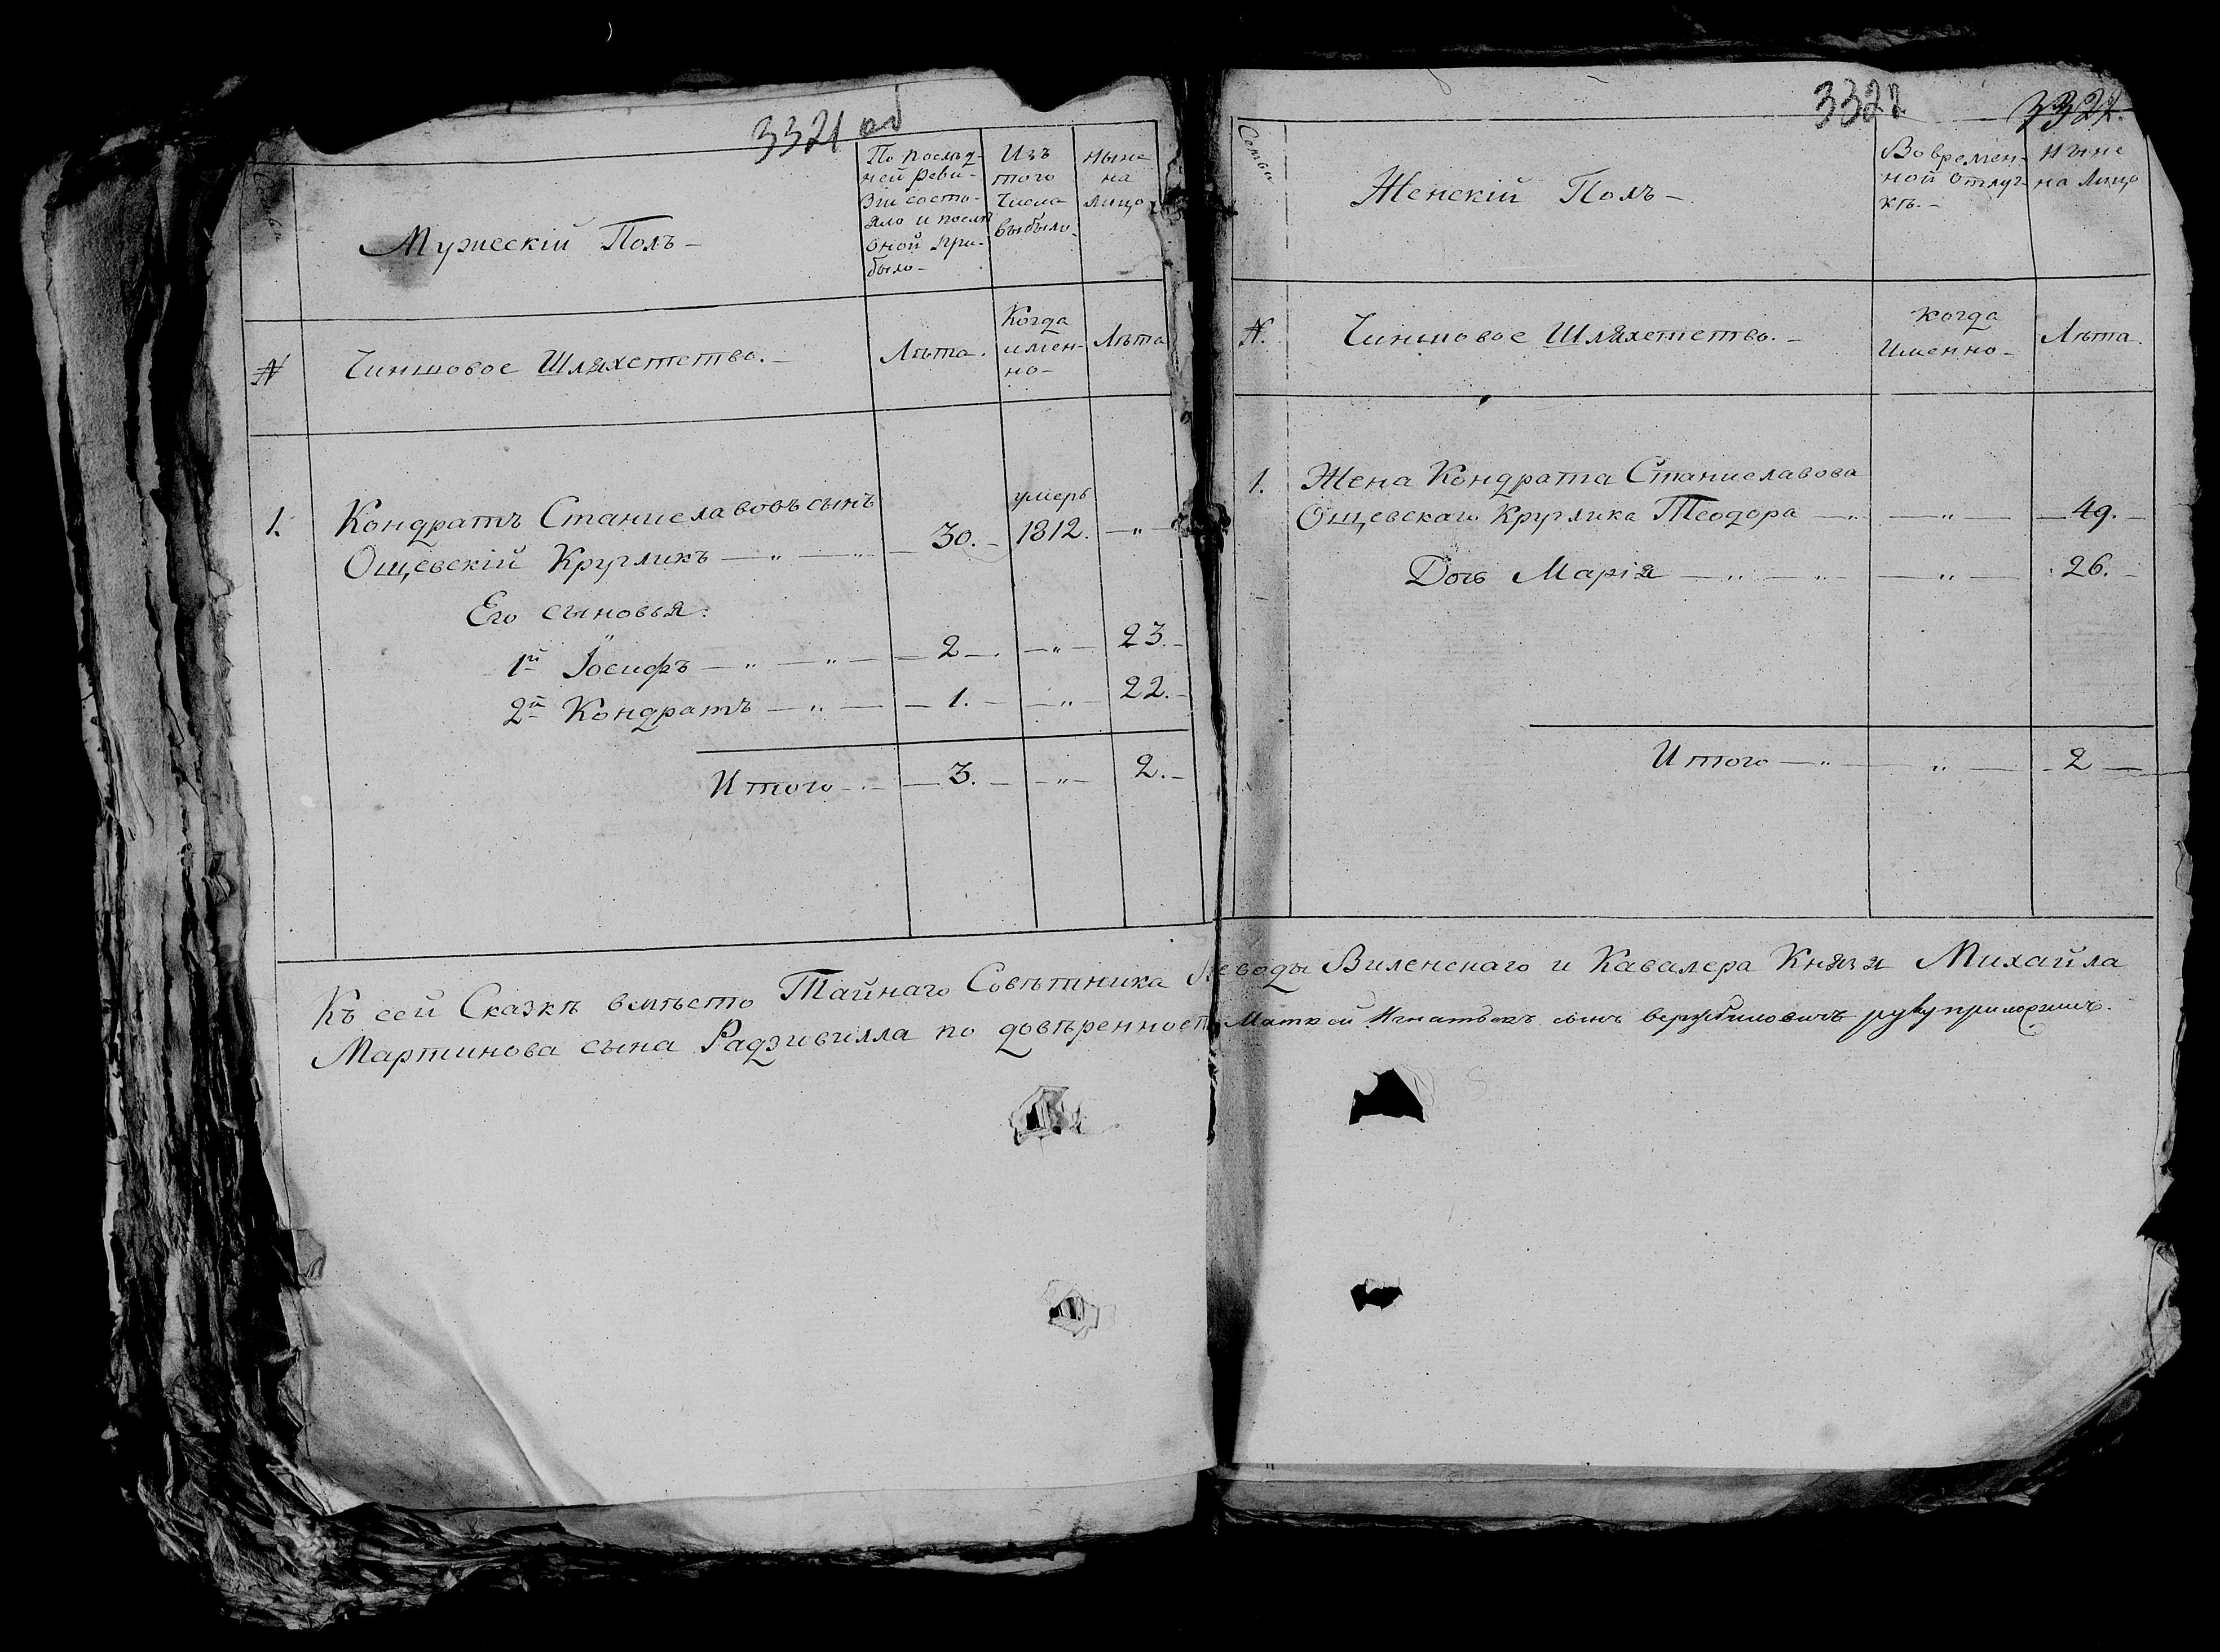 3321 об
Семьи
Мужескій Полъ
По послѣд-
ней реви-
зіи состо-
яло и послѣ
оной при-
было
Изъ
того
числа
выбыло
Ныне
на
лицо
№
Чиншовое Шляхетство.
Лѣта.
Когда
имен-
но
Лѣта
1. Кондратъ Станиславовъ сынъ
Ощевскій Кругликъ — „ — „ — 30. умеръ 1812. — „
Его сыновья:
1й Іосифъ — „ — „ — 2 — „ — 23.
2й Кондратъ — „ — 1. — „ — 22.
Итого — 3. — „ — 2.
3322 3322.
Семьи
Женскій Полъ
Во времен-
ной отлуч-
кѣ.
Ныне
на лицо
№.
Чиншовое Шляхетство.
Когда
Именно
Лѣта.
1. Жена Кондрата Станиславова
Ощевскаго Круглика Теодора — „ — „ — 49.
Дочь Марія — „ — „ — „ — 26.
Итого — „ — „ — 2
Къ сей Сказкѣ вмѣсто Тайнаго Совѣтника Воеводы Виленскаго и Кавалера Князя Михайла
Мартинова сына Радзивилла по довѣренности Маткей Игнатьевъ сынъ вержбиловичъ руку приложилъ.